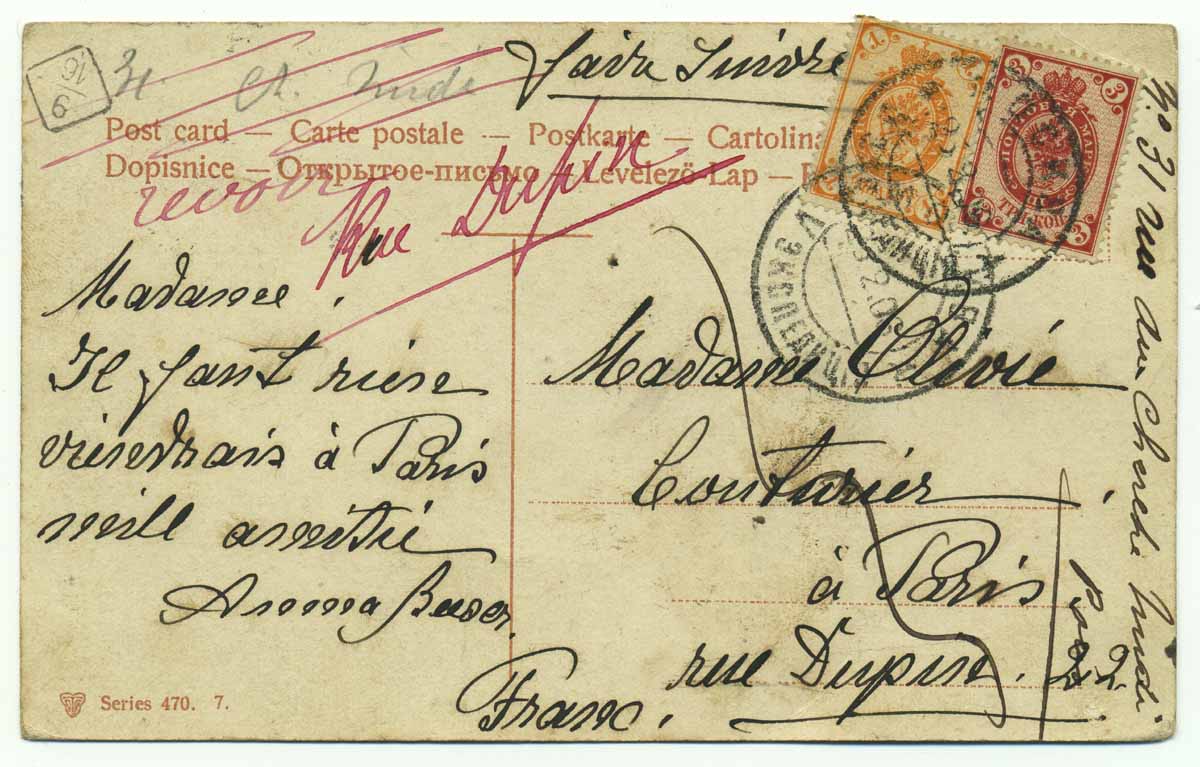 16/9
31
faire Suivre
Post card — Carte postale — Postkarte — Cartolina
Dopisnice — Открытое-письмо — Levelezö-Lap —
revoir
Rue Dupin
1
3
3
ТРИ КОП
Madame.
Il fant rien
viendrais à Paris
mill amitié
Anna
Madame Olivié
Couturier
à Paris
rue Dupin. 22
Franc.
No 31 rue du Cherche midi
Series 470. 7.